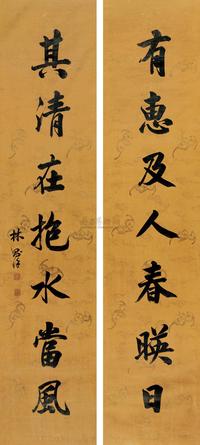 有惠及人春暎日
其清在抱水當風
林則徐